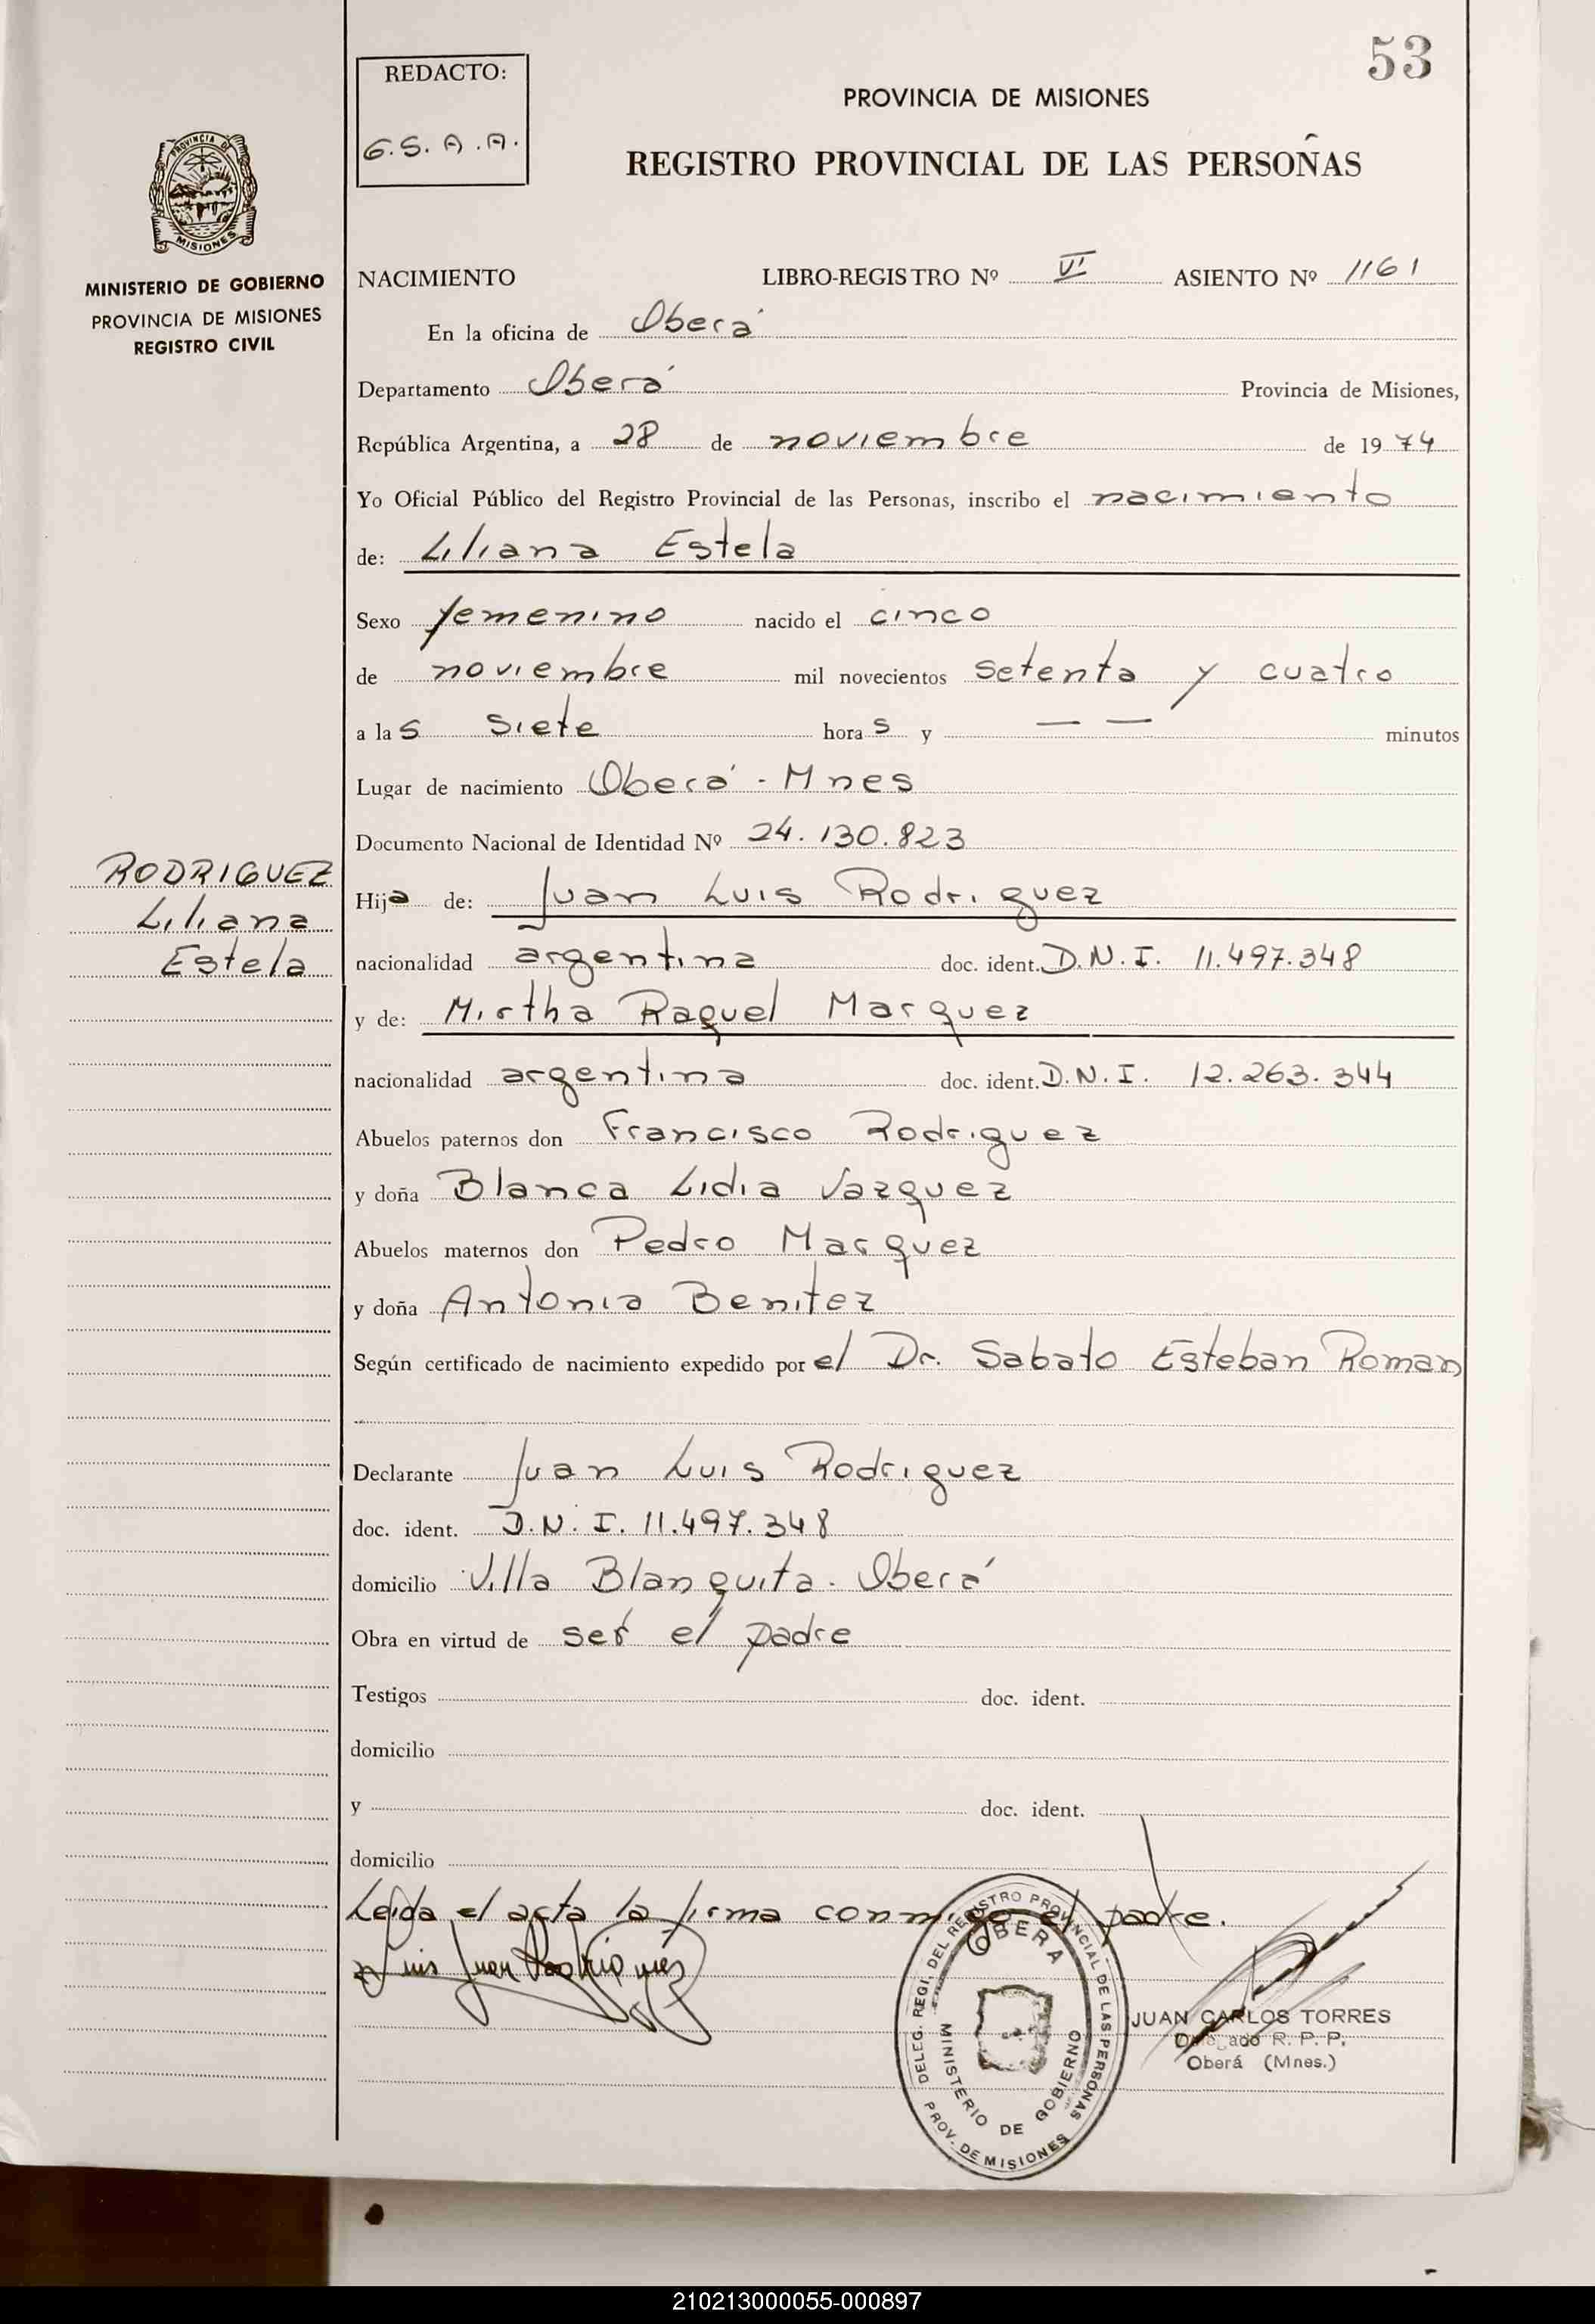 53
REDACTO:
G.S.A.A.
PROVINCIA DE MISIONES
REGISTRO PROVINCIAL DE LAS PERSOÑAS
PROVINCIA DE
MISIONES
MINISTERIO DE GOBIERNO
PROVINCIA DE MISIONES
REGISTRO CIVIL
NACIMIENTO LIBRO-REGISTRO Nº VI ASIENTO Nº 1161
En la oficina de Oberá
Departamento Oberá Provincia de Misiones,
República Argentina, a 28 de noviembre de 1974
Yo Oficial Público del Registro Provincial de las Personas, inscribo el nacimiento
de: Liliana Estela
Sexo femenino nacido el cinco
de noviembre mil novecientos setenta y cuatro
a las siete horas y — — minutos
Lugar de nacimiento Oberá - Mnes
Documento Nacional de Identidad Nº 24.130.823
RODRIGUEZ
Liliana
Estela
Hija de: Juan Luis Rodriguez
nacionalidad argentina doc. ident. D.N.I. 11.497.348
y de: Mirtha Raquel Marquez
nacionalidad argentina doc. ident. D.N.I. 12.263.344
Abuelos paternos don Francisco Rodriguez
y doña Blanca Lidia Vazquez
Abuelos maternos don Pedro Marquez
y doña Antonia Benitez
Según certificado de nacimiento expedido por el Dr. Sabato Esteban Roman
Declarante Juan Luis Rodriguez
doc. ident. D.N.I. 11.497.348
domicilio Villa Blanquita. Oberá
Obra en virtud de ser el padre
Testigos doc. ident.
domicilio
y doc. ident.
domicilio
Leida el acta la firma conmigo el padre.
Luis Juan Rodriguez
DELEG. REGI. DEL REGISTRO PROVINCIAL DE LAS PERSONAS
OBERA
MINISTERIO DE GOBIERNO
PROV. DE MISIONES
JUAN CARLOS TORRES
Delegado R. P. P.
Oberá (Mnes.)
210213000055-000897